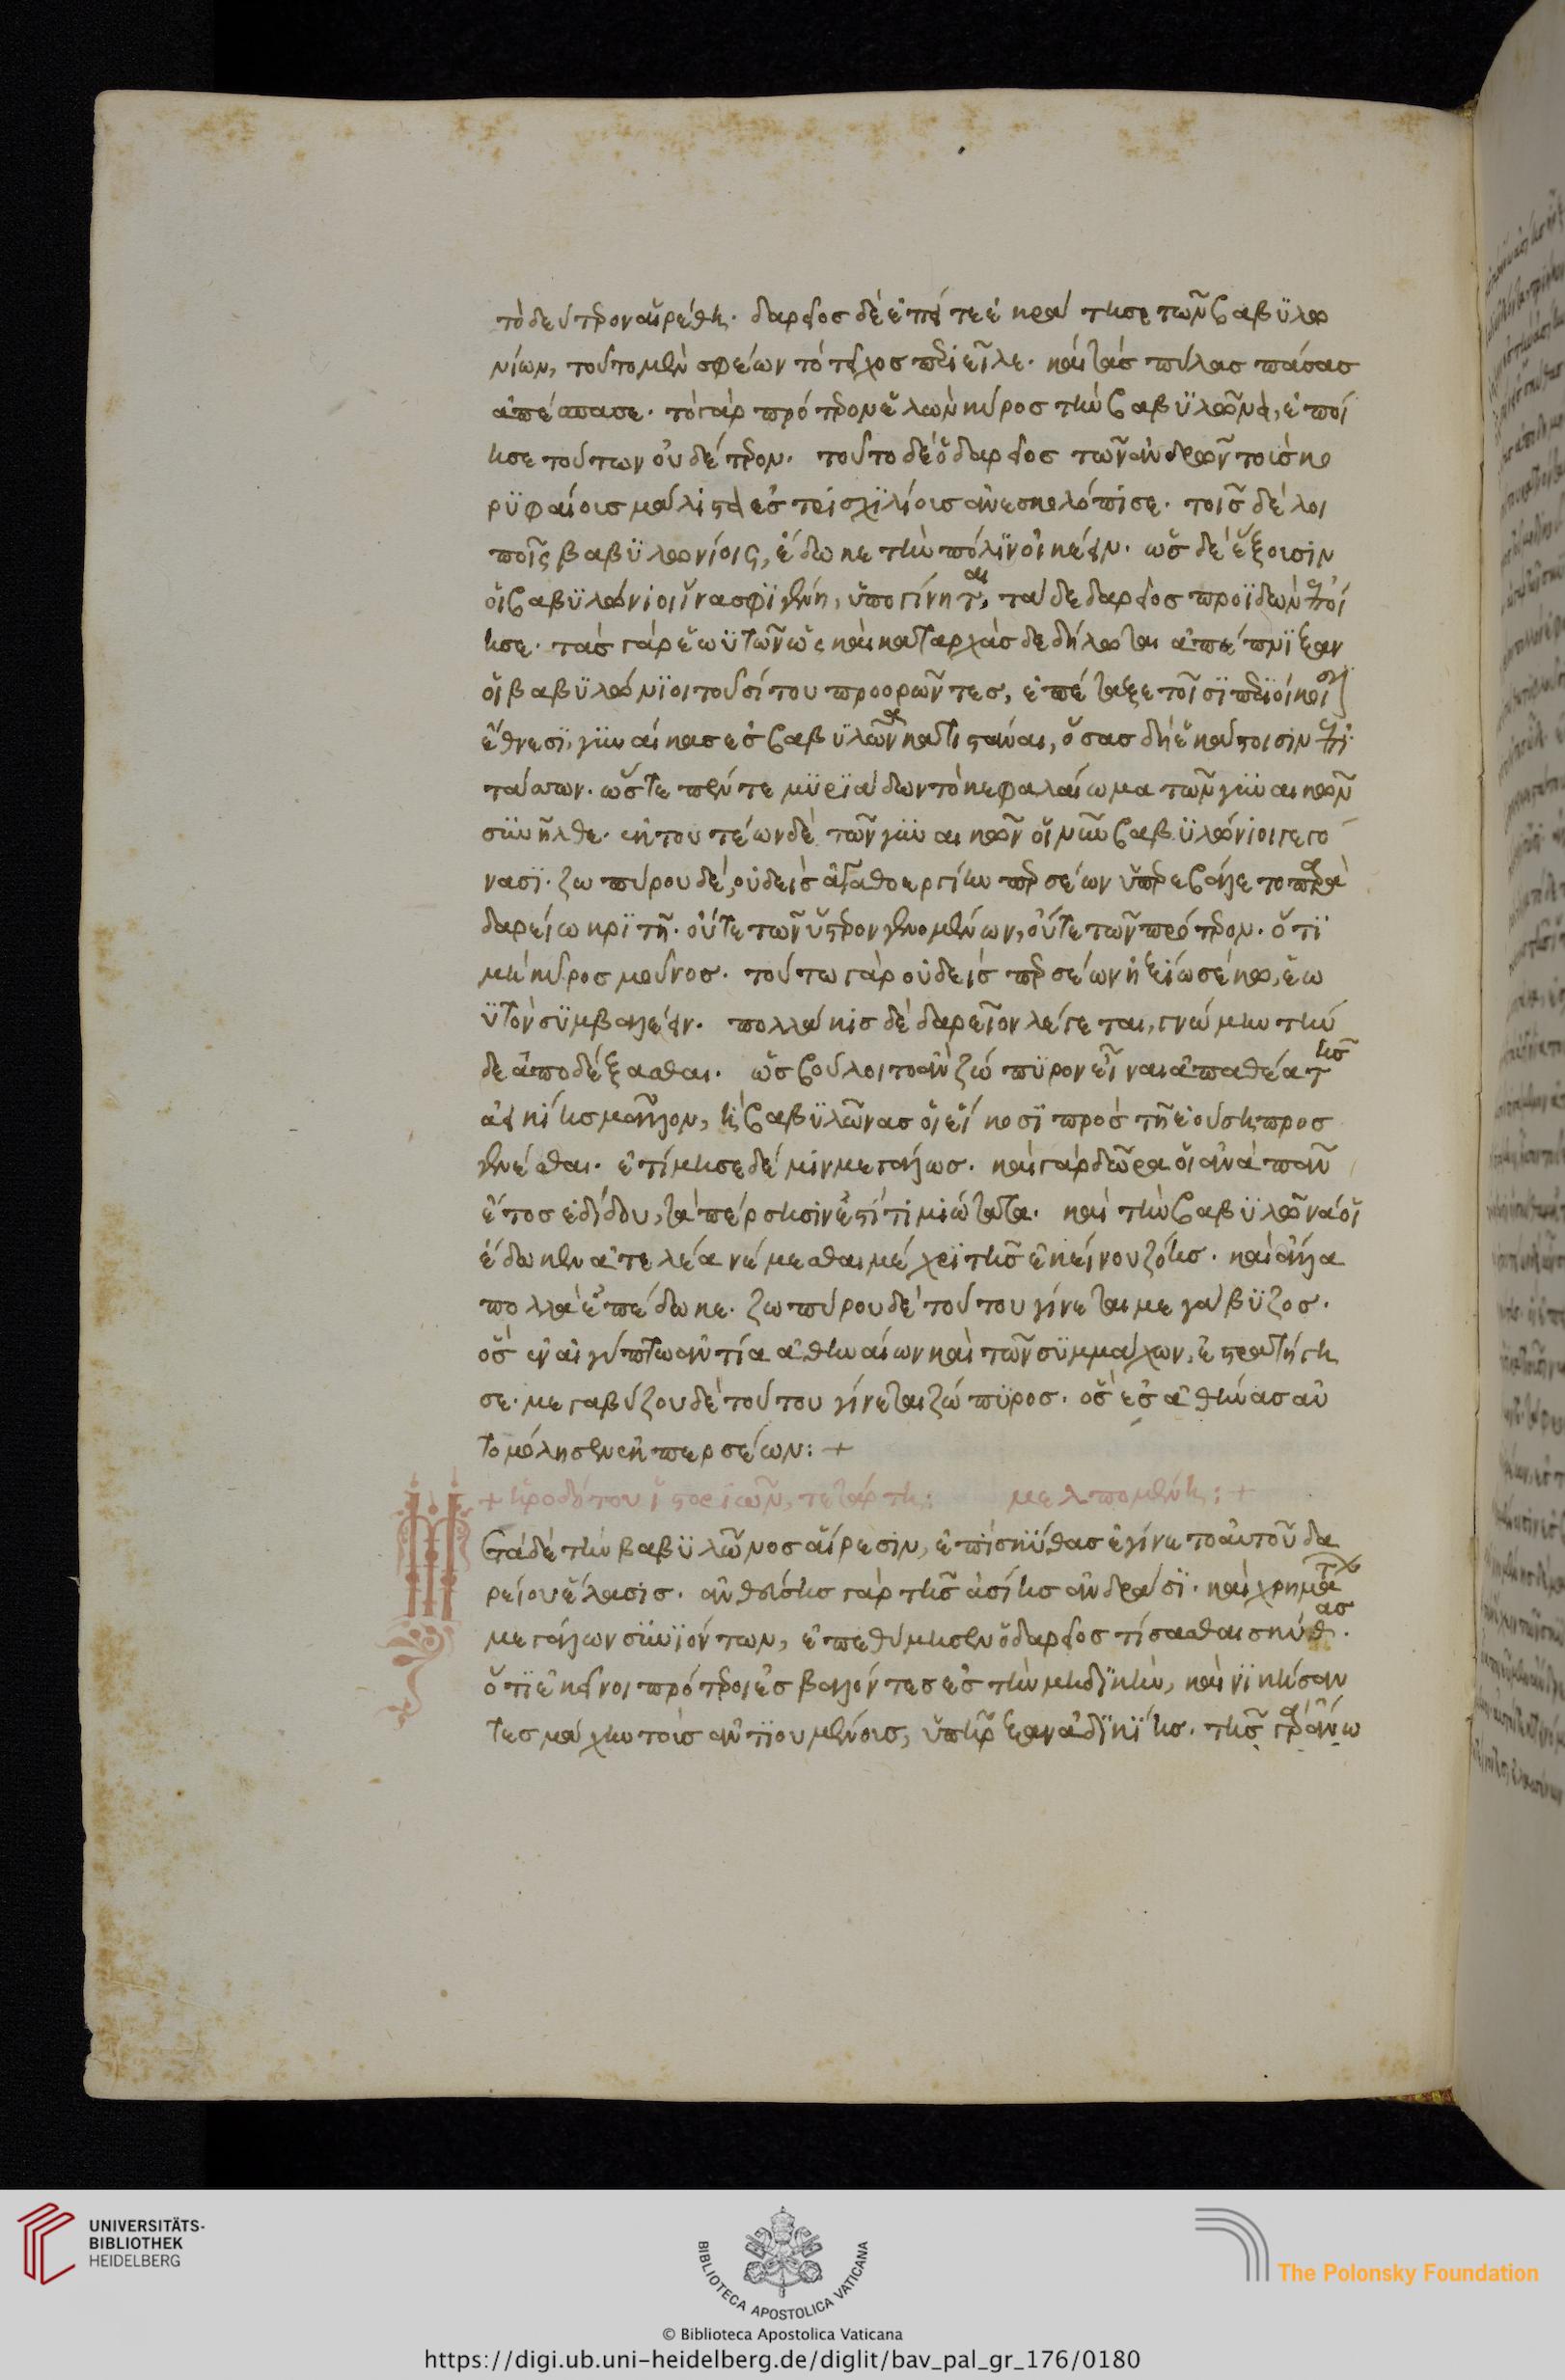 τὸ δεύτερον αἱρέθη. δαρεῖος δὲ ἐπεί τε ἐκράτησε τῶν βαβυλω
νίων, τοῦτο μὲν σφέων τὸ τεῖχος περιεῖλε. καὶ τὰς πύλας πάσας
ἀπέσπασε. τὸ γὰρ πρότερον ἑλὼν κῦρος τὴν βαβυλῶνα, ἐποί
ησε τούτων οὐδέτερον. τοῦτο δὲ ὁ δαρεῖος τῶν ἀνδρῶν τοὺς κο
ρυφαίους μάλιστα ἐς τρισχιλίους ἀνεσκολόπισε. τοῖς δὲ λοι
ποῖς βαβυλωνίοις, ἔδωκε τὴν πόλιν οἰκέειν. ὡς δὲ ἕξουσιν
οἱ βαβυλώνιοι ἵνα σφι γενεή, ὑπογίνηται, τάδε δαρεῖος προϊδὼν ἐποί
ησε. τὰς γὰρ ἑωυτῶν ὡς καὶ κατ ἀρχὰς δεδήλωται ἀπέπνιξαν
οἱ βαβυλώνιοι τοῦ σίτου προορῶντες, ἐπέταξε τοῖσι περιοίκοισι
ἔθνεσι, γυναῖκας ἐς βαβυλῶνα κατιστάναι, ὅσας δὴ ἑκάστοισιν ἐπι
τάσσων. ὥστε πέντε μυριάδων τὸ κεφαλαίωμα τῶν γυναικῶν
συνῆλθε. ἐκ τουτέων δὲ τῶν γυναικῶν οἱ νῦν βαβυλώνιοι γεγό
νασι. ζωπύρου δὲ, οὐδεὶς ἀγαθοεργίην περσέων ὑπερεβάλετο παρὰ
δαρείω κριτῆ. οὔτε τῶν ὕστερον γενομένων, οὔτε τῶν πρότερον. ὅτι
μὴ κῦρος μοῦνος. τούτω γὰρ οὐδεὶς περσέων ἠξίωσέ κω, ἑω
υτὸν συμβαλέειν. πολλάκις δὲ δαρεῖον λέγεται, γνώμην τήν
δε ἀποδέξασθαι. ὡς βούλοιτο ἂν ζώπυρον εἶναι ἀπαθέα τῆς
ἀεικίης μᾶλλον, ἢ βαβυλῶνας οἱ εἴκοσι πρὸς τῆ ἐούση προσ
γενέσθαι. ἐτίμησε δέ μιν μεγάλως. καὶ γὰρ δῶρα οἱ ἀνὰ πᾶν
ἔτος ἐδίδου, τὰ πέρσησιν ἐστὶ τιμιώτατα. καὶ τὴν βαβυλῶνά οἱ
ἔδωκεν ἀτελέα νέμεσθαι μέχρι τῆς ἐκείνου ζόης. καὶ ἄλλα
πολλὰ ἐπέδωκε. ζωπύρου δὲ τούτου γίνεται μεγάβυζος.
ὃς ἐν αἰγύπτω ἀντία ἀθηναίων καὶ τῶν συμμάχων, ἐστρατήγη
σε. μεγαβύζου δὲ τούτου γίνεται ζώπυρος. ὃς ἐς ἀθήνας αὐ
τομόλησεν ἐκ περσέων: +
+ ἡροδότου ἱστοριῶν, τετάρτη: μελπομένη: +
Μετὰ δὲ τὴν βαβυλῶνος αἵρεσιν, ἐπὶ σκύθας ἐγίνετο αὐτοῦ δα
ρείου ἔλασις. ἀνθεύσης γὰρ τῆς ἀσίης ἀνδράσι. καὶ χρημάτων
μεγάλων συνιόντων, ἐπεθύμησεν ὁ δαρεῖος τίσασθαι σκύθας.
ὅτι ἐκεῖνοι πρότεροι ἐσβαλόντες ἐς τὴν μηδικὴν, καὶ νικήσαν
τες μάχη τοὺς ἀντιουμένους, ὑπῆρξαν ἀδικίης. τῆς γὰρ ἄνω
UNIVERSITÄTS-
BIBLIOTHEK
HEIDELBERG
BIBLIOTECA APOSTOLICA VATICANA
The Polonsky Foundation
© Biblioteca Apostolica Vaticana
https://digi.ub.uni-heidelberg.de/diglit/bav_pal_gr_176/0180